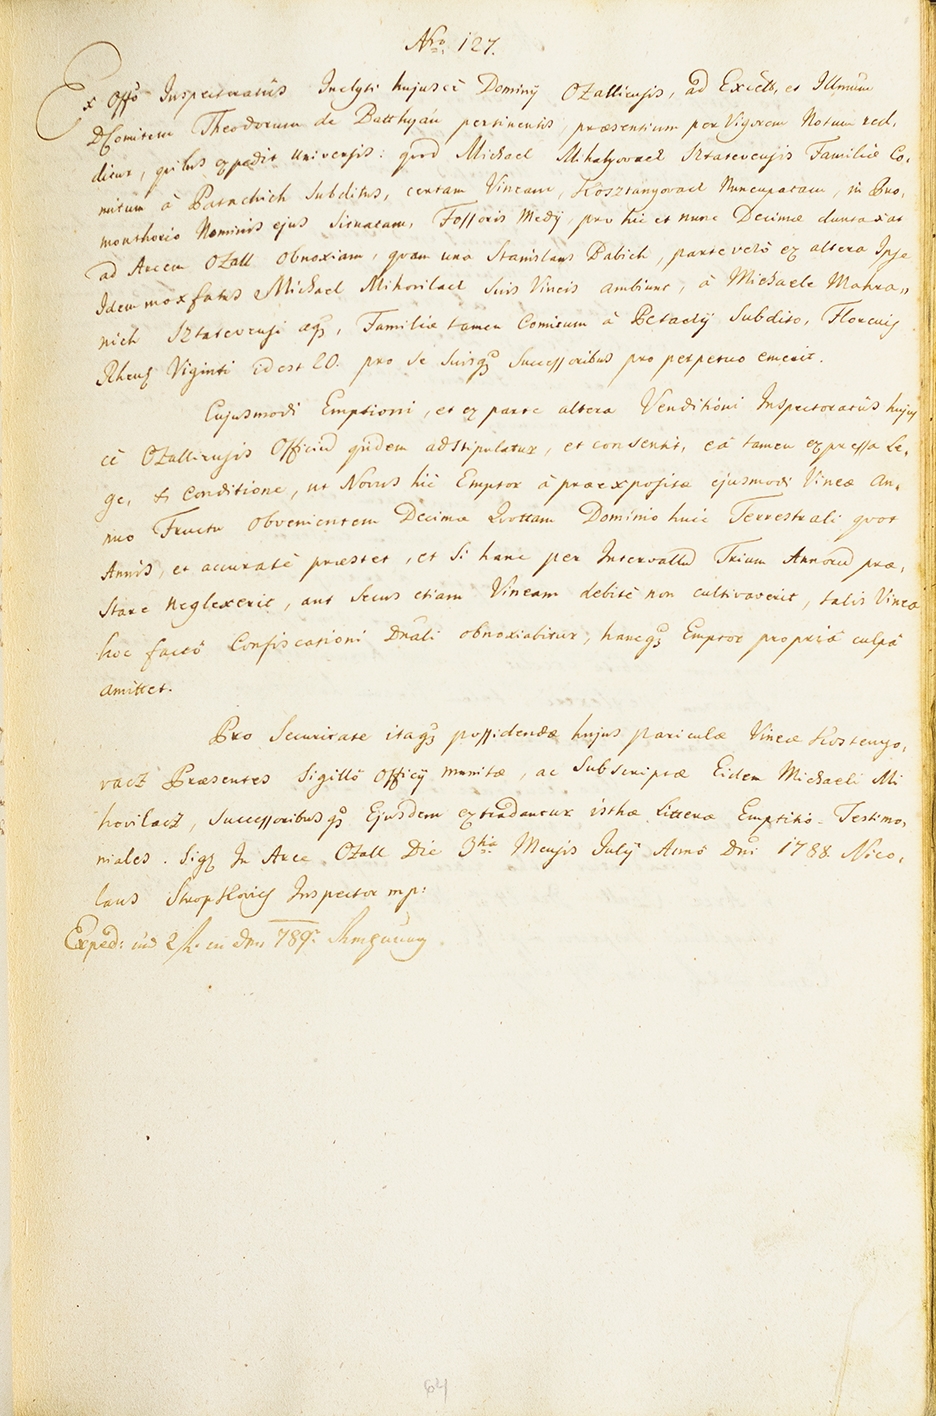 Nro 127.
Ex Offo Inspectoratûs Inclyti hujusce Dominy Ozalliensis, ad Excell. et Illmum
D Comitem Theodorum de Batthyan pertinentis, præsentium per Vigorem Notum red,
ditur, quibus expedit universis: quod Michael Mihalyovacz Sztatevensis Familiæ Co,
mitum à Patachich Subditus, certam Vineam, Kosztanyovacz Nuncupatam, in Pro,
monthorio Nominis ejus situatam, Fossoris Medy, pro hic et nunc Decimæ duntaxat
ad Arcem Ozall obnoxiam, quam una Stanislaus Babich, parte verò ex altera Ipse
Idem mox fatus Michael Mihovilacz suis Vineis ambiunt, à Michaele Mahra,,
nich Sztatevensi æq, Familiæ tamen Comitum à Petachy Subdito, Florenis
Rhens Viginti id est 20. pro se suisq successoribus pro perpetuo emerit.
Cujusmodi Emptioni, et ex parte altera Venditioni Inspectoratûs hujus
ce Ozalliensis Officium quidem adstipulatur, et consentit, eâ tamen expressa Le,
ge, & Conditione, ut Novus hic Emptor à præexpositæ ejusmodi Vineæ an,
nuo Fructu obvenientem Decimæ Quottam Dominio huic Terrestrali quot
Annis, et accuratè præstet, et si hanc per Intervallum Trium Annorum præ,
stare neglexerit, aut secus etiam Vineam debitè non cultivaverit, talis Vinea
hoc factô Confiscationi Dnali obnoxiabitur, hancq Emptor propriâ culpâ
amittet.
Pro Securitate itaq possidendæ hujus pariculæ Vineæ Kostenyo,
vacz Præsentes Sigillô Officy munitæ, ac Subscriptæ Eidem Michaeli Mi
hovilacz, Successoribusq Ejusdem extradantur isthæ Litteræ Emptitio-Testimo,
niales. Sig In Arce Ozall Die 3tia Mensis July Anno Dni 1788. Nico,
laus Skropskovich Inspector mp:
Exped: 789
64